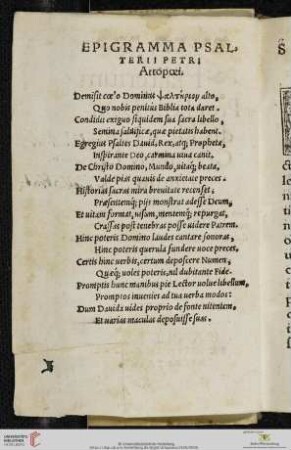 EPIGRAMMA PSAL-
TERII PETRI
Artopœi.
Demisit cœlo Dominus ψαλτήριον alto,
Quo nobis penitus Biblia tota daret.
Condidit exiguo siquidem sua sacra libello,
Semina saluificæ, quæ pietatis habent.
Egregius Psaltes Dauid, Rex, atq; Propheta,
Inspirante Deo, carmina uiua canit.
De Christo Domino, Mundo, uitaq; beata,
Valde pias quauis de anxietate preces.
Historias sacras mira breuitate recenset,
Præsentemq; pijs monstrat adesse Deum,
Et uitam format, usum, mentemq; repurgat,
Crassas post tenebras posse uidere Patrem.
Hinc poteris Domino laudes cantare sonoras,
Hinc poteris querula fundere uoce preces,
Certis hinc uerbis, certum deposcere Numen,
Quæq; uoles poteris, nil dubitante Fide.
Promptis hunc manibus pie Lector uolue libellum,
Promptos inuenies ad tua uerba modos:
Dum Dauida uides proprio de fonte nitentem,
Et uarias maculas deposuisse suas.
S